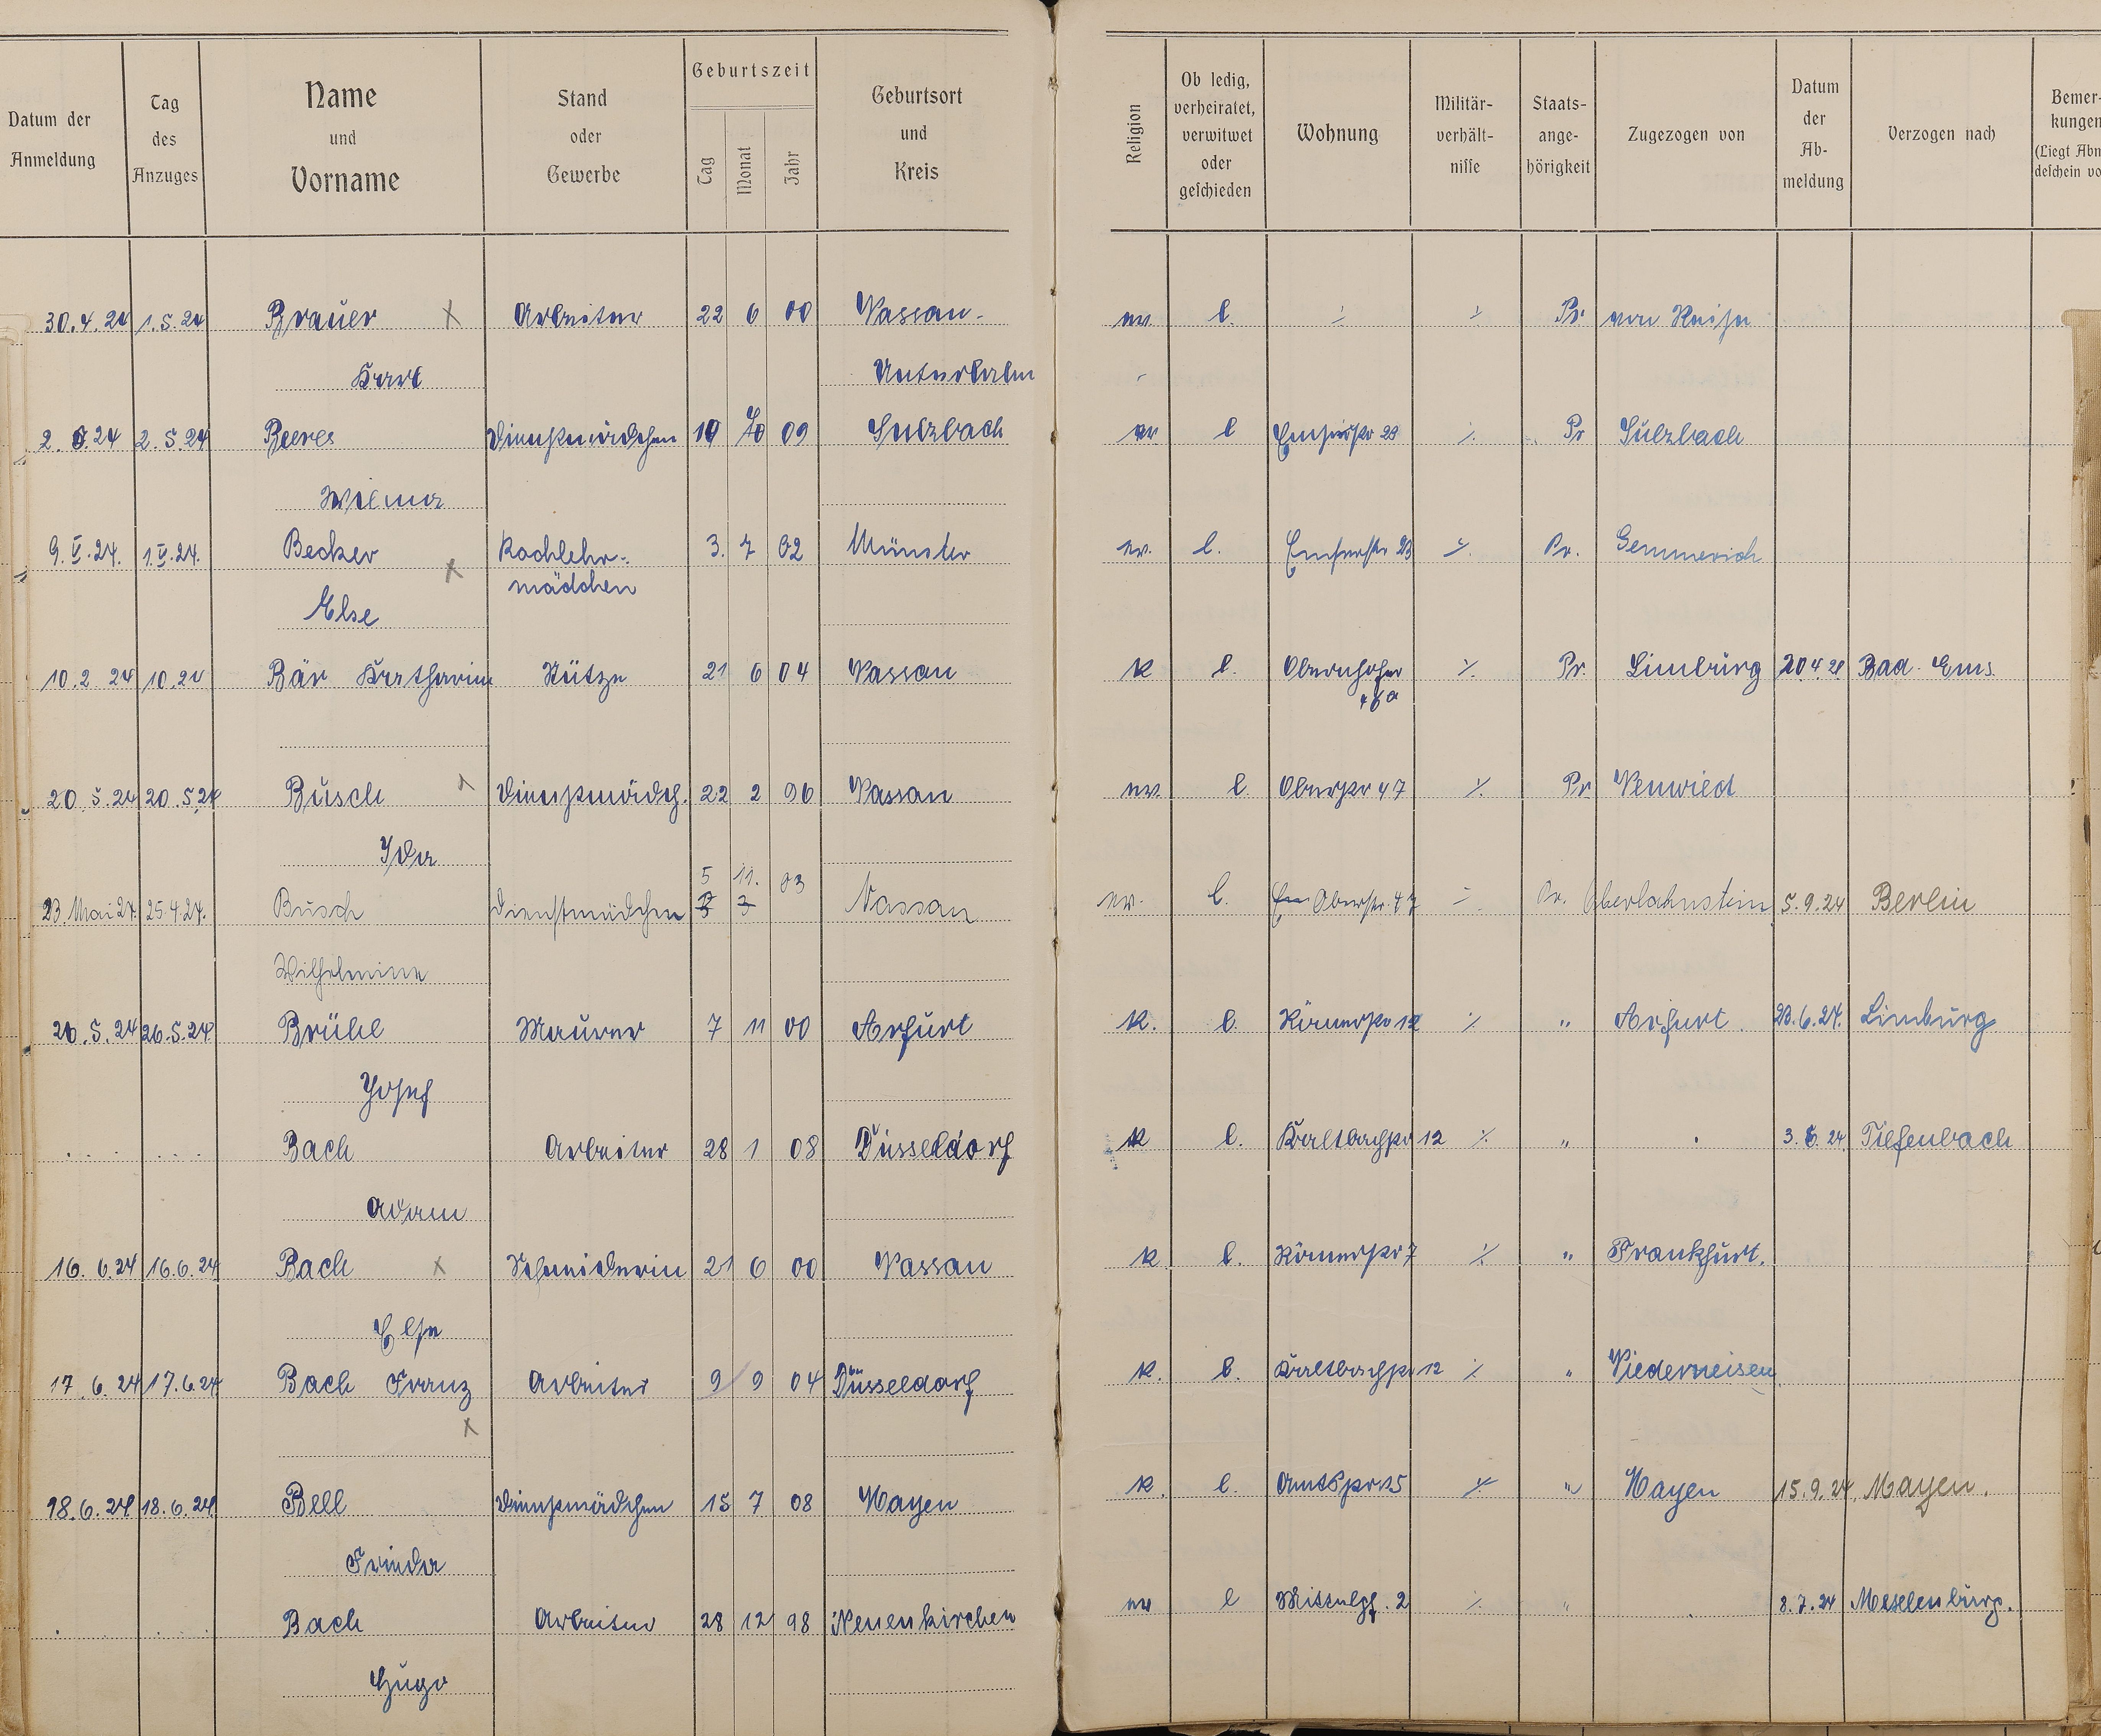 Datum der Anmeldung
Tag des Anzuges
Name und Vorname
Stand oder Gewerbe
Geburtszeit
Tag Monat Jahr
Geburtsort und Kreis
Religion
Ob ledig, verheiratet, verwitwet oder geschieden
Wohnung
Militär-verhält-nisse
Staats-ange-hörigkeit
Zugezogen von
Datum der Ab-meldung
Verzogen nach
Bemer-kungen
(Liegt Abm
deschein vo
30.4.24 1.5.24 Brauer x Arbeiter 22 6 00 Nassau- ev. l. ⁒ ⁒ Pr. von Reise
Karl Unterlahn
2. 5.24 2.5.24 Beeres Dienstmädchen 10 09 Sulzbach ev l Emserstr 23 ⁒ Pr Sulzbach
Wilma
9.V.24. 1.V.24. Becker x Kochlehr- 3. 7 02 Münster ev. l. Emserstr 23 ⁒ Pr. Gemmerich
mädchen
Else
10.2 24 10.24 Bär Katharina Stütze 21 6 04 Nassau K l. Obernhofer ⁒ Pr. Limburg 20.4.24 Bad-Ems.
46a
20 5.24 20.5.24 Busch x Dienstmädch. 22 2 96 Nassau ev. l. Oberstr 47 ⁒ Pr Neuwied
Ida
5 11. 03
23. Mai 24. 25.4.24. Busch Dienstmädchen 3 Nassau ev. l. Oberstr. 47 ⁒ Pr. Oberlahnstein 5.9.24 Berlin
Wilhelmine
26.5.24 26.5.24 Brühl Maurer 7 11 00 Arfurt K. l. Römerstr 12 ⁒ " Arfurt 23.6.24. Limburg
Josef
. . . . . . Bach Arbeiter 28 1 08 Düsseldorf K l. Kaltbachstr 12 ⁒ " . 3.6.24. Tiefenbach
Adam
16.6.24 16.6.24 Bach x Schneiderin 21 6 00 Nassau K l. Römerstr 7 ⁒ " Frankfurt.
Else
17.6.24 17.6.24 Bach Franz Arbeiter 9 9 04 Düsseldorf K. l. Kaltbachstr 12 ⁒ " Niederneisen
x
18.6.24 18.6.24 Bell Dienstmädchen 15 7 08 Mayen K. l. Amtsstr 25 ⁒ " Mayen 15.9.24. Mayen.
Frieda
. . . . Bach Arbeiter 28 12 98 Neuenkirchen ev l Mittelgs. 2 ⁒ " . 8.7.24
Hugo